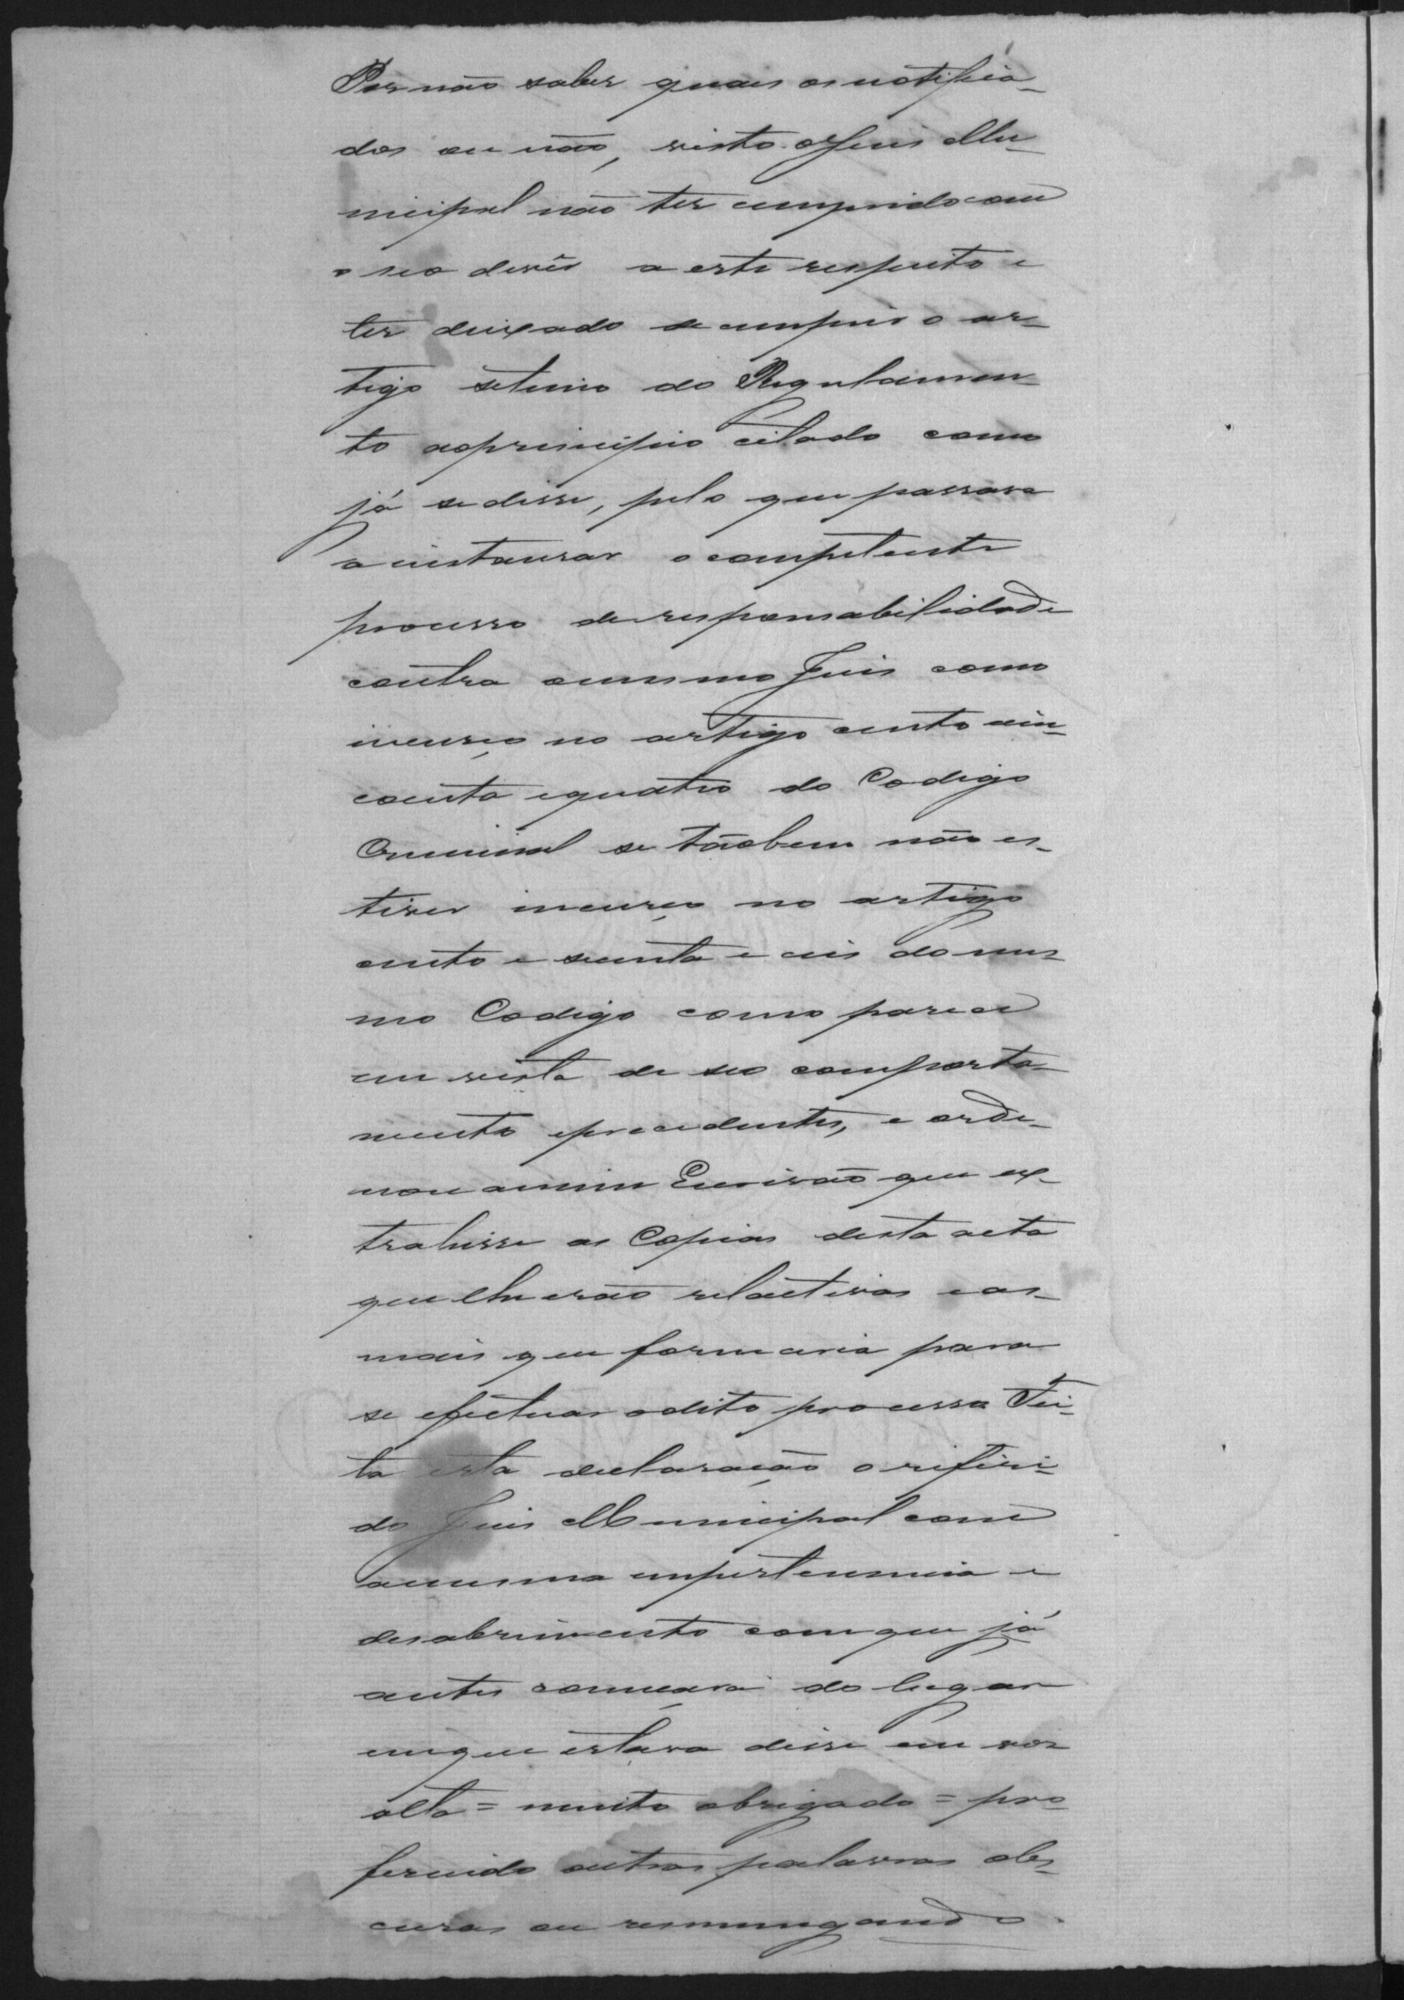 Por não saber quaes os notifica-
dos ou não, visto o Juis Mu-
nicipal não ter cumprido com
o seo devêr a este respeito e
ter deixado de cumprir o ar-
tigo setimo do Regulamen-
to aoprincipio citado como
já se disse, pelo que passava
a instaurar o competente
processo de responsabilidade
contra omesmo Juis como
incurço no artigo cento cin-
coenta equatro do Codigo
Criminal se tãobem não es-
tiver incurço no artigo
cento e secenta e seis do mes-
mo Codigo como parece
em vista de seo comporta-
mento eprecedentes, e orde-
nou amim Escrivão que ex-
trahisse as Copias desta acta
que lhe erão relactivas e as
mais que formaria para
se efectuar odito processo Fei-
ta esta declaração o referi-
do Juis Municipal com
amesma impertenencia e
desabrimento comque já
antes começara do lugar
emque estava disse em vos
alta = muito obrigado = pro
ferindo outras palavras obs-
curas ou resmungando